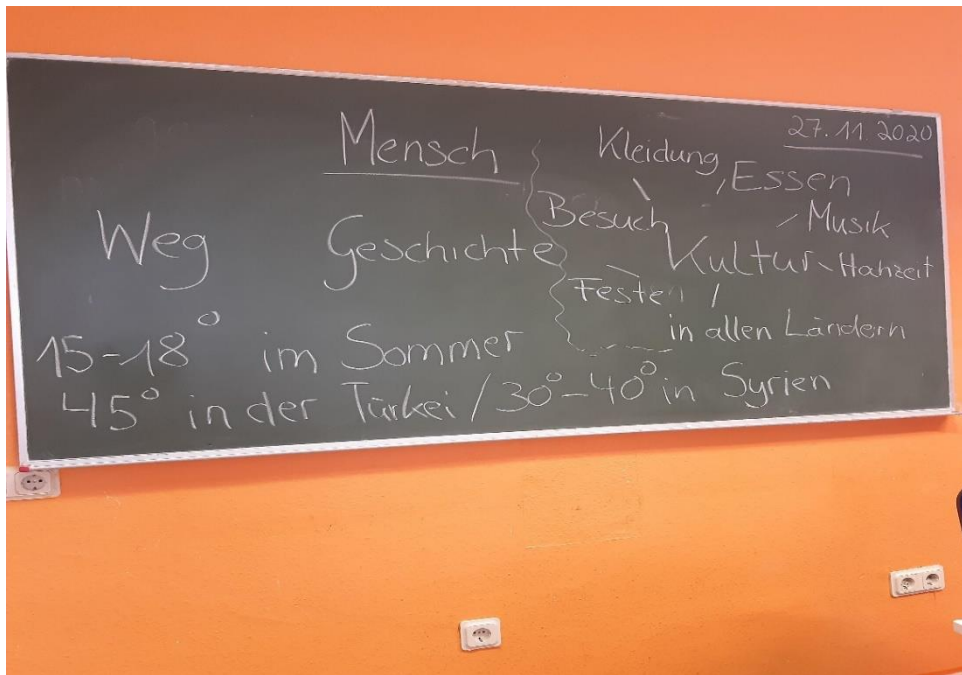 27.11.2020
Mensch
Kleidung
Essen
Besuch
Musik
Weg Geschichte
Kultur - Hahzeit
Festen
in allen Ländern
15-18° im Sommer
45° in der Türkei / 30°-40° in Syrien